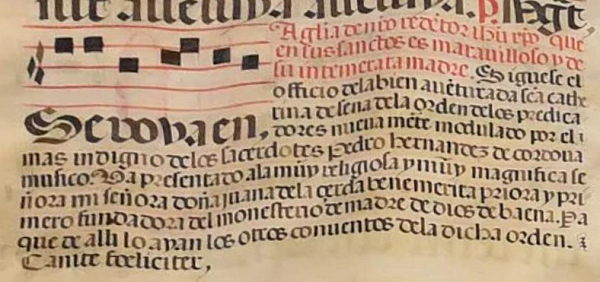 alleluya alleluya. p. Mgt,
A gl̃ia de nr̃o redẽtor ihũ xp̃o que
en sus sanctos es marauilloso y de
su intemerata madre. Siguese el
officio dela bien auẽturada sc̃a cathe
rina de sena dela orden delos predica
Seuouaen, dores nueuamẽte modulado por el
mas indigno delos sacerdotes pedro hernandez de cordoua
musico. Va presentado ala muy religiosa y muy magnifica se
ñora mi señora doña juana dela cerda benemerita priora y pri
mero fundadora del monesterio de madre de dios de baena. Pa
que de alli lo ayan los otros conuentos dela dicha orden.
Canite foeliciter,